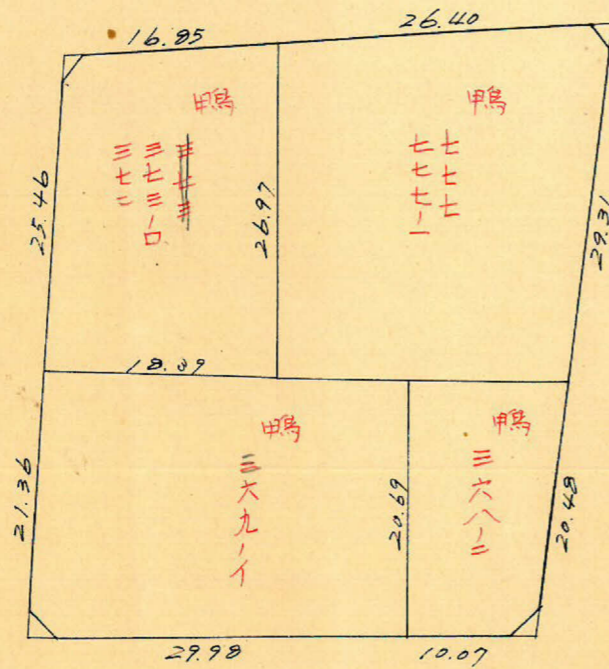 16.85
26.40
鴨
三七三
三七三ノロ
三七二
25.46
26.97
鴨
七七七
七七七ノ一
29.31
18.39
鴨
三六九ノイ
21.36
20.69
鴨
三六八ノ二
20.48
29.98
10.07